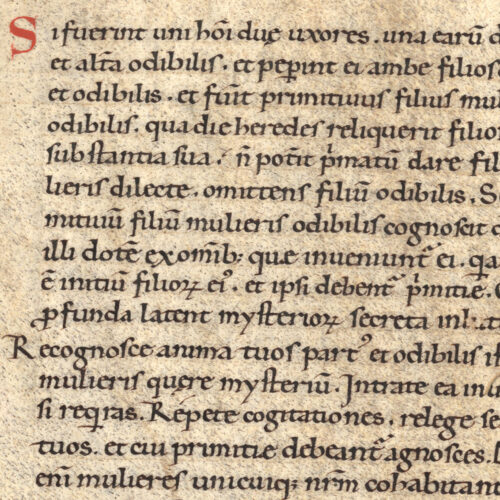 Si fuerint uni hōi duę uxores. una earū d
et alt̄a odibilis. et pep̄int ei ambe filios
et odibilis. et fūit primitivus filius mul
odibilis. qua die heredes reliquerit filio
substantia sua. n̄ pot̄it p̄matū dare fil
lieris dilecte. omittens filiū odibilis. S
mitivū filiū mulieris odibilis cognoscit
illi dotē exomīb; quæ inveniunt̄ ei. qa
ē initiū filioꝝ ei᾽. et ipsi debent̄ p̄mitię.
ꝓfunda latent mysterioꝝ secreta
Recognosce anima tuos part᾽ et odibilis
mulieris quęre mysteriū. Intrate ea in
si reqͥras. Repete cogitationes. relege se
tuos. et cui primitię debeant̄ agnosces.
enī mulieres unicuiq; nr̄m cohabitant